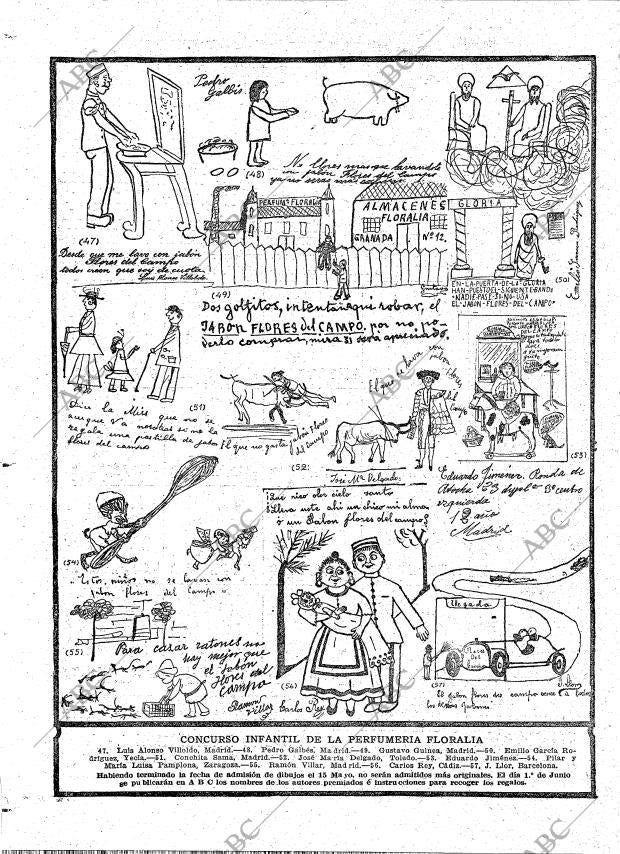 Pedro
Galbis.
(48)
No llores mas que lavandote
con jabón Flores del Campo
ya no seras mas
(47)
Desde que me lavo con jabón
Flores del Campo
todos creen que soy de cuota.
Luis Alonso Villoldo.
PERFUMª FLORALIA
ALMACENES
FLORALIA
GRANADA Nº 12.
(49)
Dos golfitos, intentan aqui robar, el
JABON FLORES del CAMPO, por no, po-
derlo comprar, mira si será apreciado.
GLORIA
(50)
EN-LA-PUERTA-DE-LA-GLORIA
HAN-PUESTO-EL-SIGUIENTE-BANDO
NADIE-PASE-SI-NO-USA
EL-JABON-FLORES-DEL-CAMPO
(51)
Dice la Miss que no se
acerque V a nosotras si no la
regala una pastilla de jabon
flores del campo
El que no gasta jabón Flores
del Campo
(52)
El que se lava con
jabon Flores
del Campo
José Mª Delgado.
(53)
Eduardo Jiménez. Ronda de
Atocha 23 dupdo 3º centro
izquierda
12 años
Madrid
(54)
Estos niños no se lavan con
jabon flores del campo
¡Que rico olor cielo santo
¿Lleva uste ahi un chico mi alma
ó un Jabon flores del campo?
(55)
Para cazar ratones no
hay mejor que
el jabón
Flores del
Campo
Ramon
Villar
(56)
Carlos Rey
Llegada
Flores
Del
Campo
(57)
J. Llor
El jabon flores del campo vence a todos
los demas jabones.
CONCURSO INFANTIL DE LA PERFUMERIA FLORALIA
47. Luis Alonso Villoldo, Madrid.—48. Pedro Galbés, Madrid.—49. Gustavo Guinea, Madrid.—50. Emilio García Ro-
dríguez, Yecla.—51. Conchita Sama, Madrid.—52. José María Delgado, Toledo.—53. Eduardo Jiménez.—54. Pilar y
María Luisa Pamplona, Zaragoza.—55. Ramón Villar, Madrid.—56. Carlos Rey, Cádiz.—57, J. Llor, Barcelona.
Habiendo terminado la fecha de admisión de dibujos el 15 Mayo, no serán admitidos más originales. El día 1.º de Junio
se publicarán en A B C los nombres de los autores premiados é instrucciones para recoger los regalos.